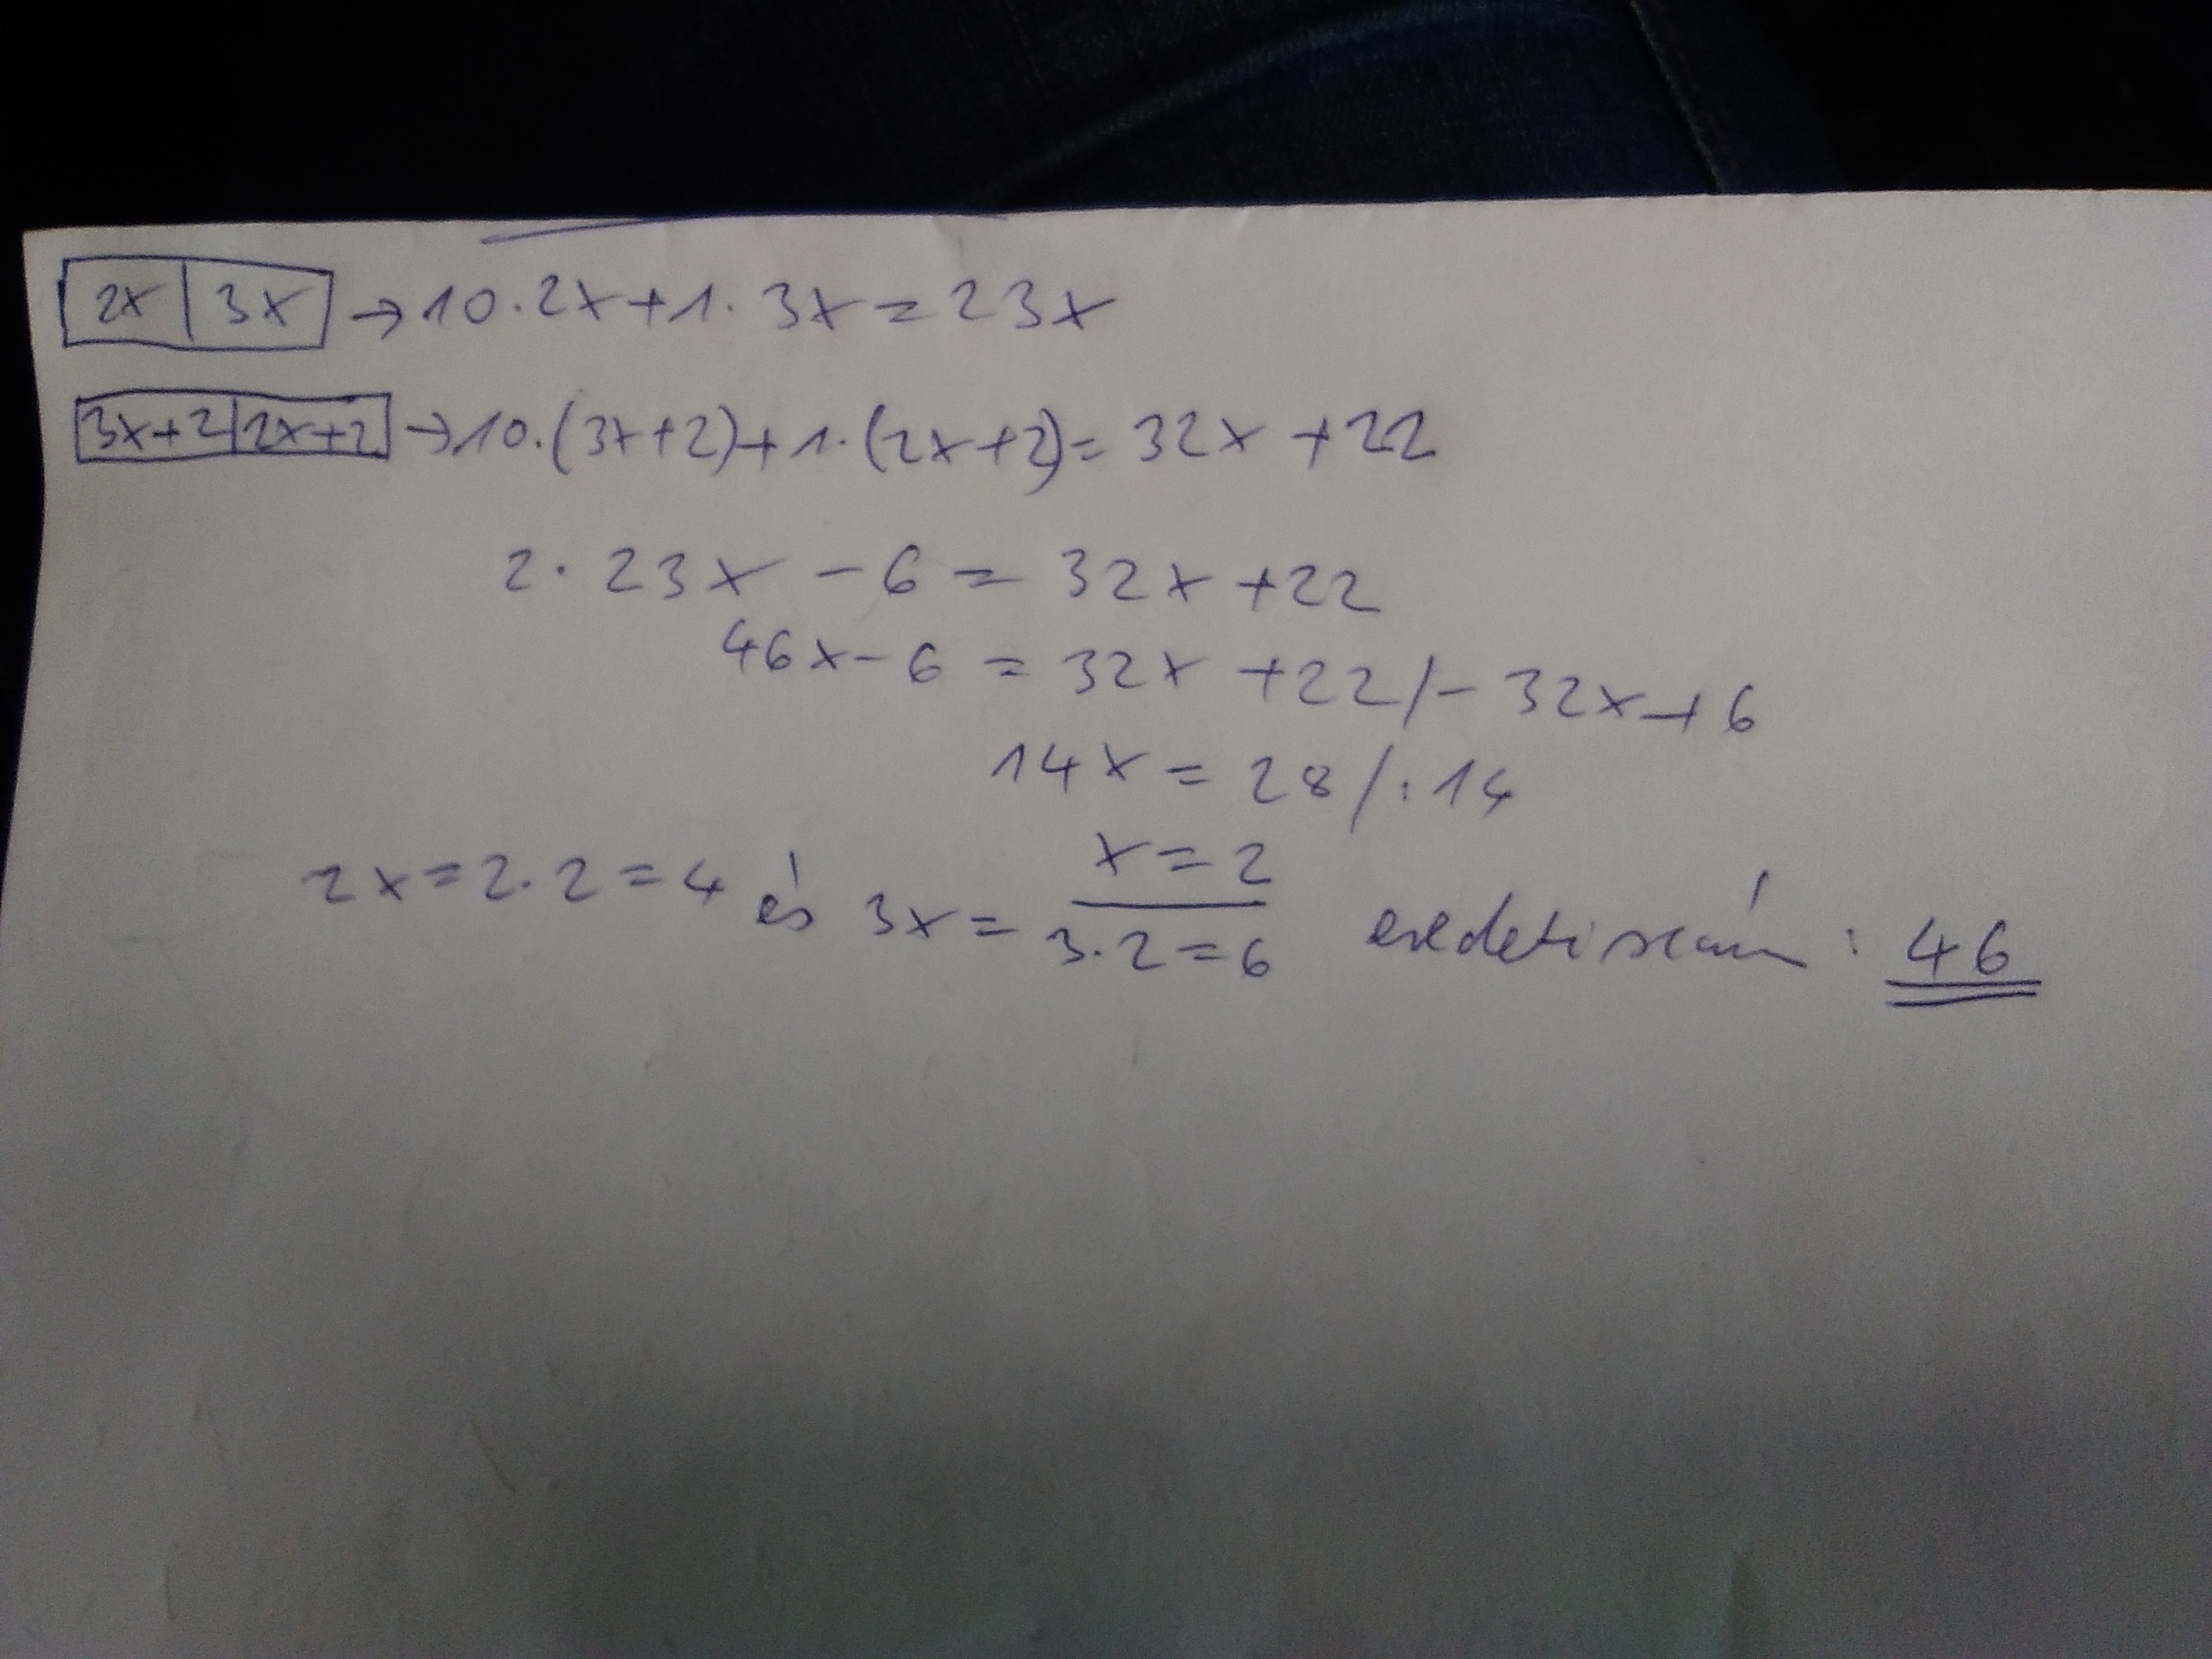 2x | 3x → 10·2x+1·3x=23x
3x+2|2x+2 → 10·(3x+2)+1·(2x+2)=32x+22
2·23x-6=32x+22
46x-6=32x+22/-32x+6
14x=28/:14
x=2
2x=2·2=4 és 3x=3·2=6 eredeti szám: 46